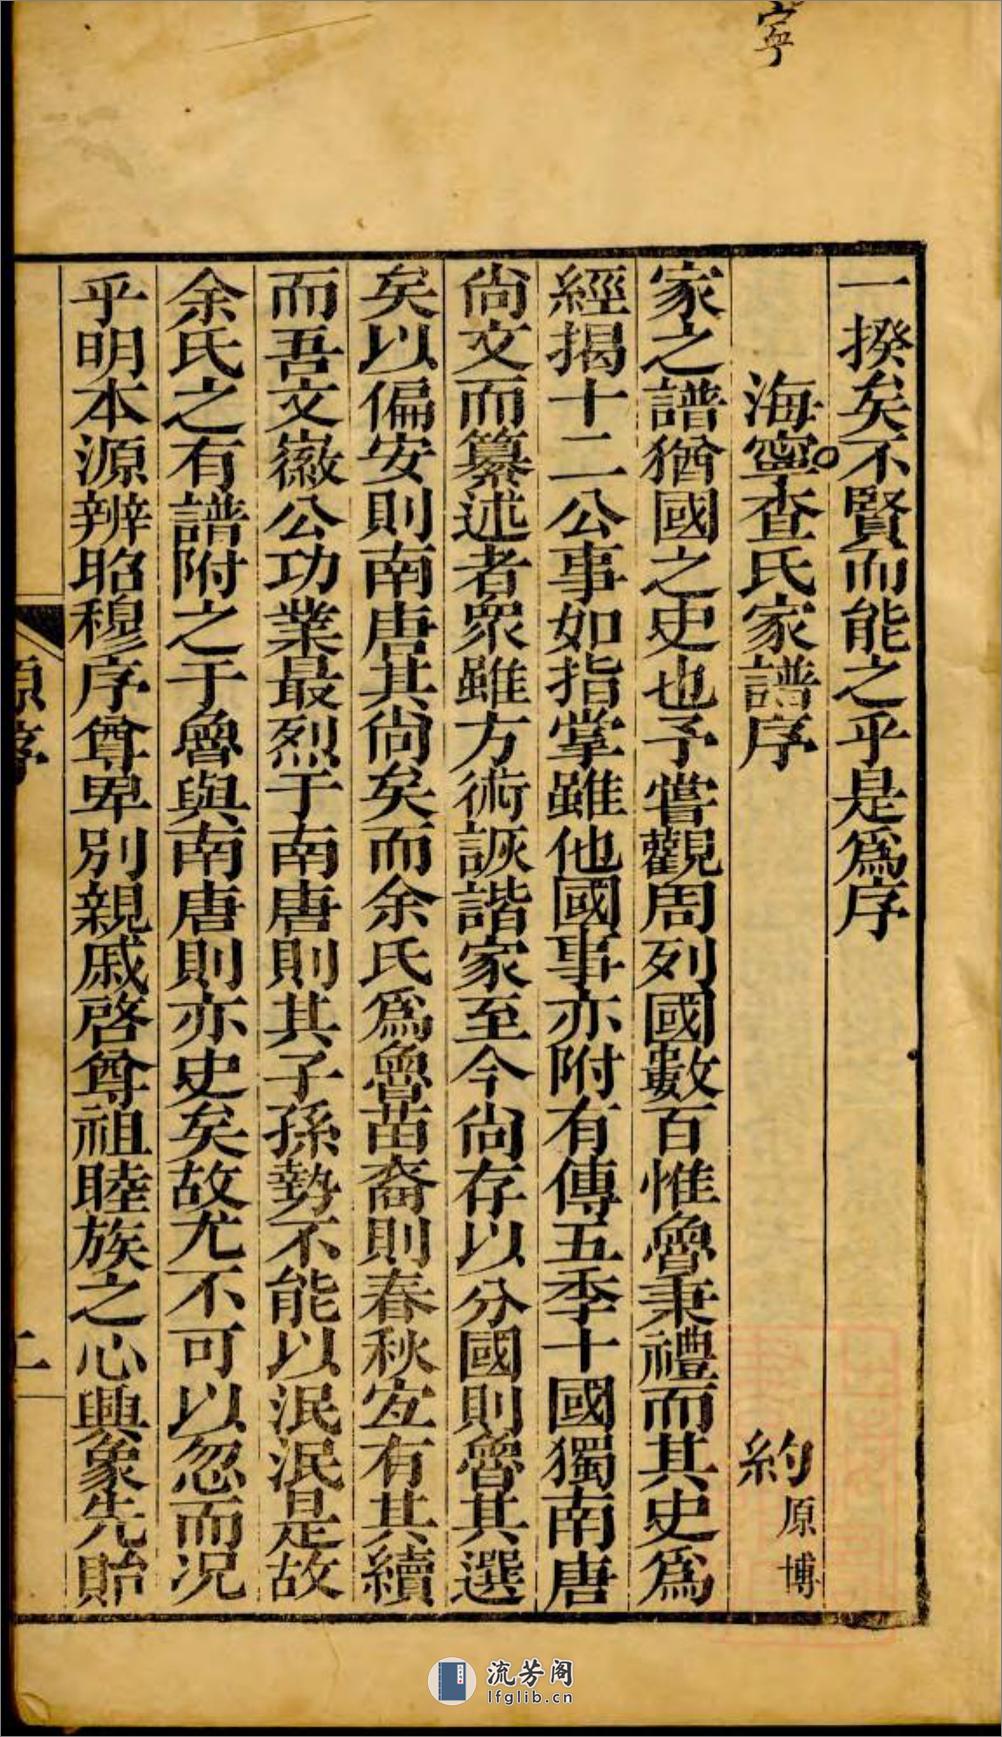 寧
一揆矣不賢而能之乎是為序
海寧查氏家譜序 約 原博
家之譜猶國之史也予嘗觀周列國數百惟魯秉禮而其史為
經揭十二公事如指掌雖他國事亦附有傳五季十國獨南唐
尚文而纂述者眾雖方術詼諧家至今尚存以分國則魯其選
矣以偏安則南唐其尚矣而余氏為魯苗裔則春秋宐有其續
而吾文徽公功業最烈于南唐則其子孫勢不能以泯泯是故
余氏之有譜附之于魯與南唐則亦史矣故尤不可以忽而况
乎明本源辨昭穆序尊卑別親戚啓尊祖睦族之心興象先貽
原序
二
流芳阁
lfglib.cn